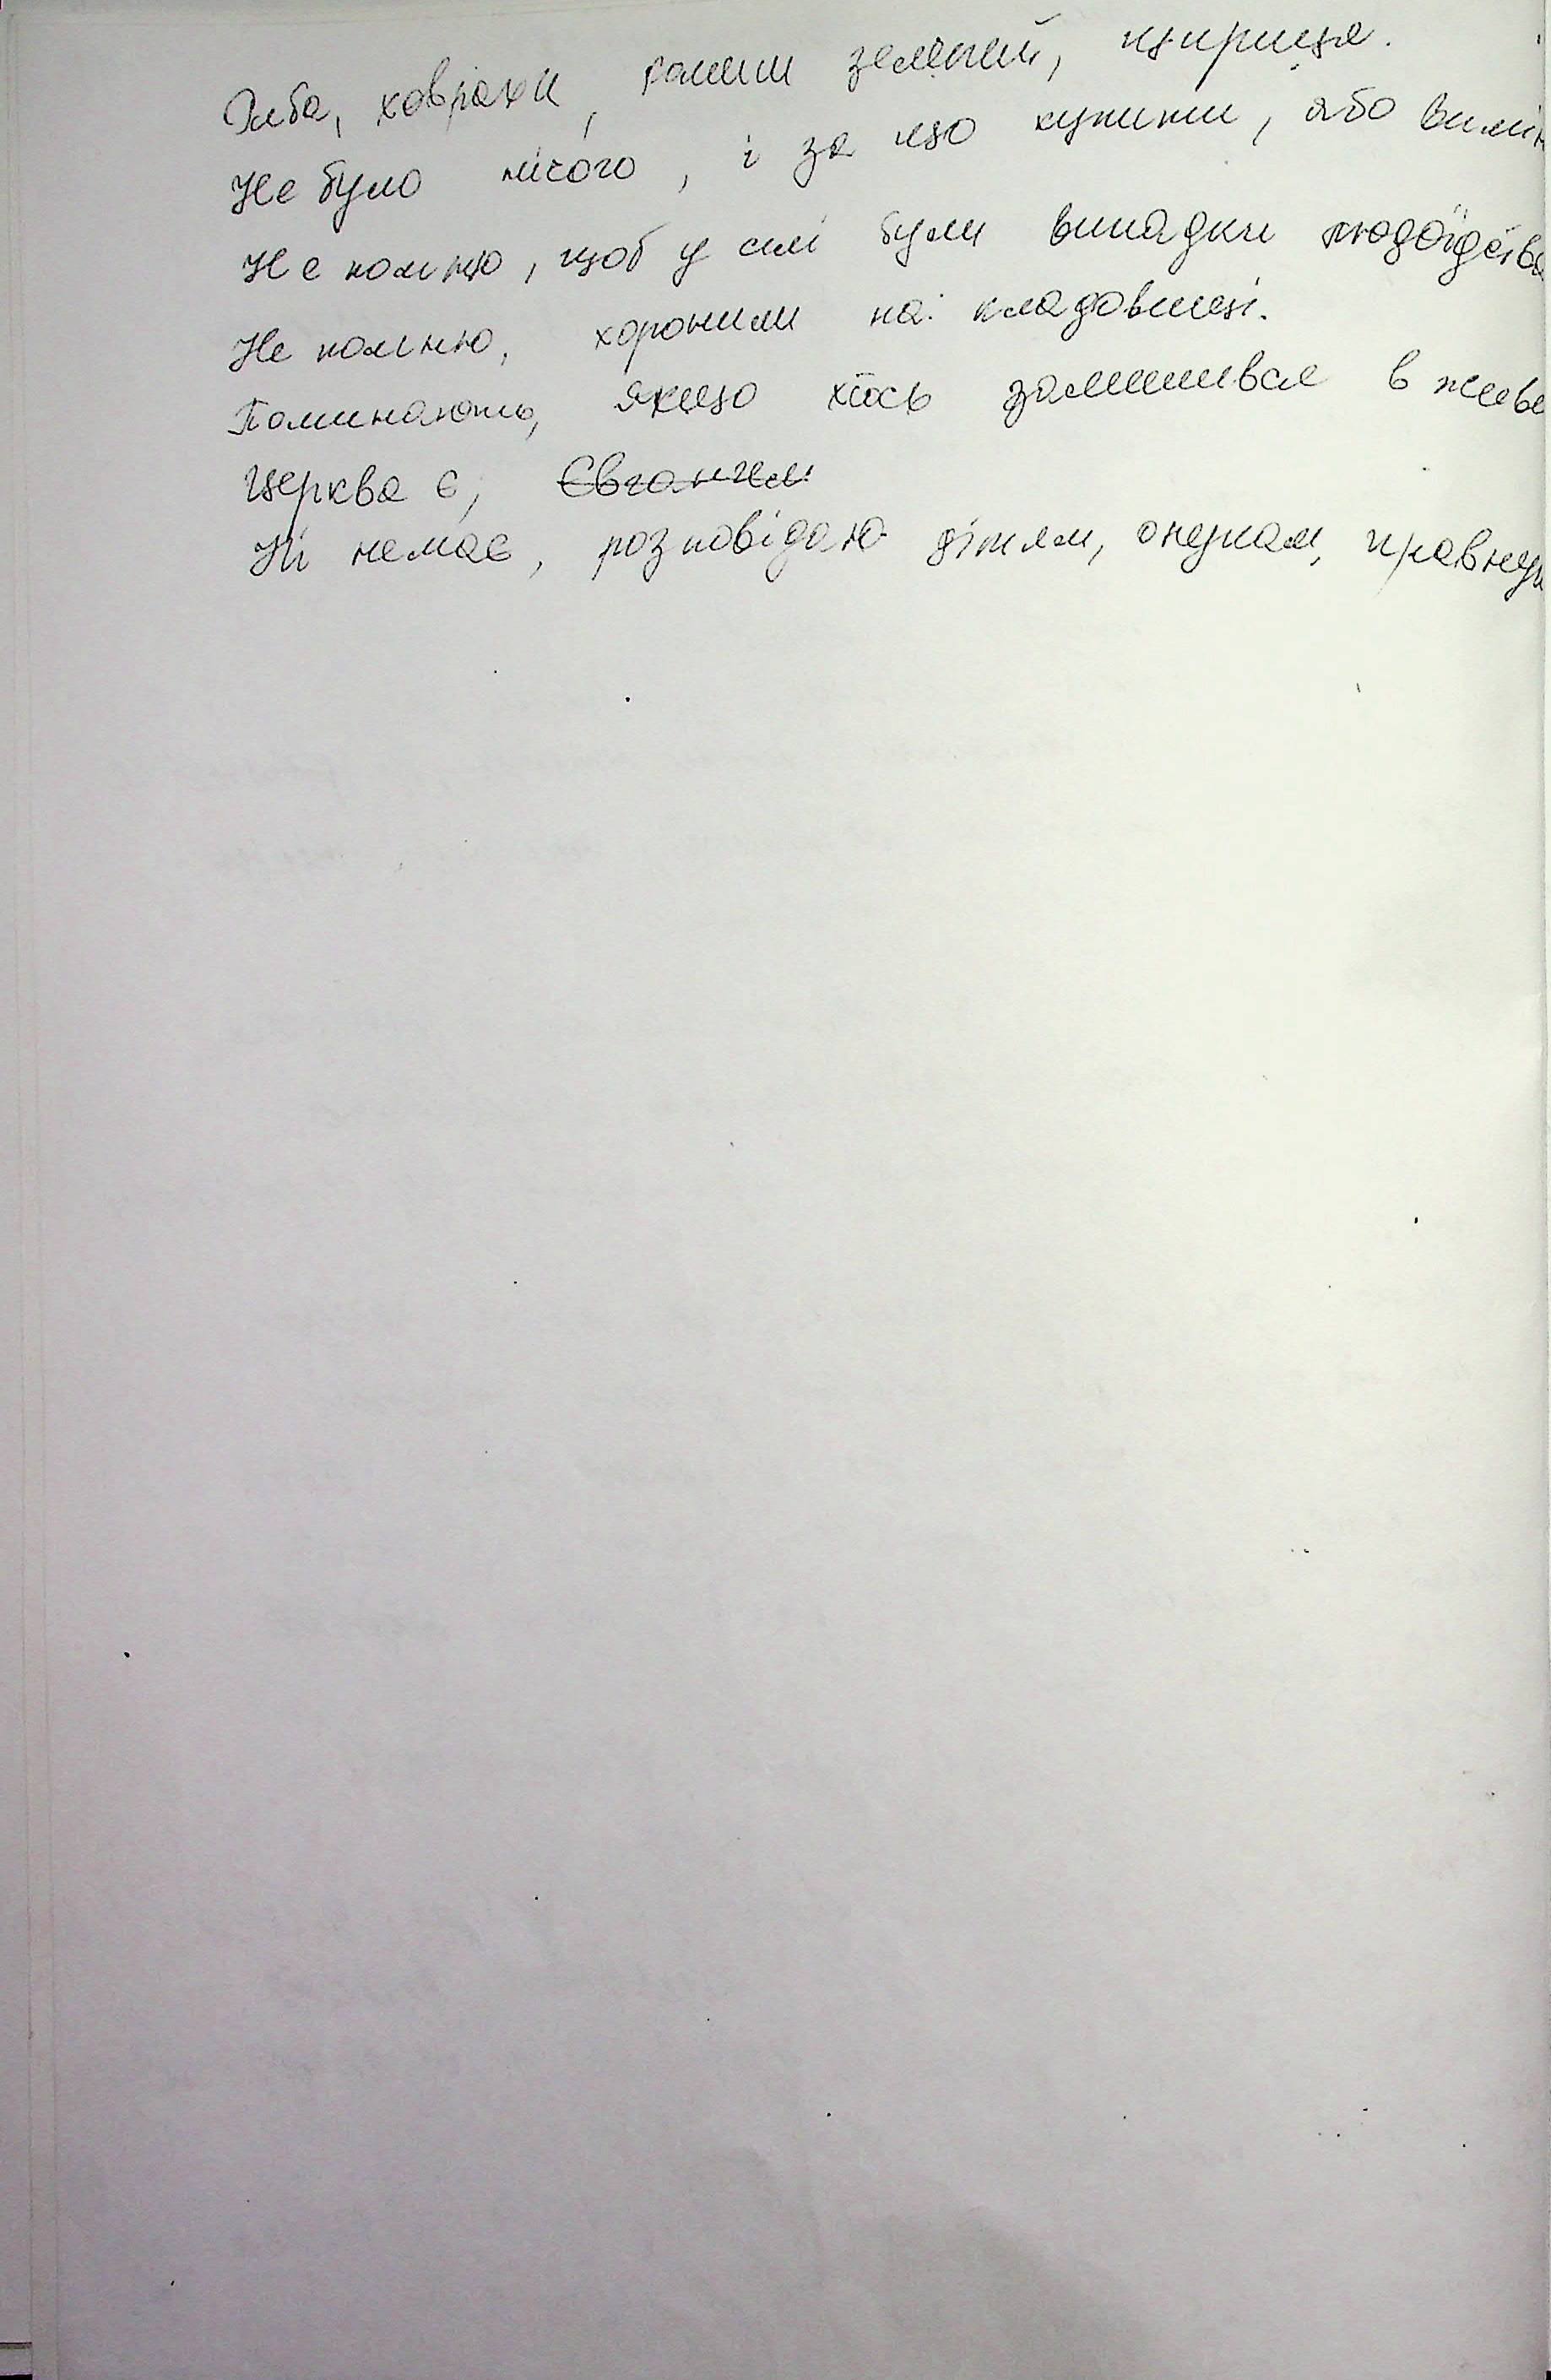 Риба, ховрахи, равлики земляний, щириця.
Не було нічого, і за що купити, або вимін
Не помню, щоб у селі були випадки людоїдства
Не помню, хоронили на кладовищі.
Поминають, якщо хтось залишився в живи
Церква є, Євгангелі
Ні немає, розповідаю дітям, онукам, правнук